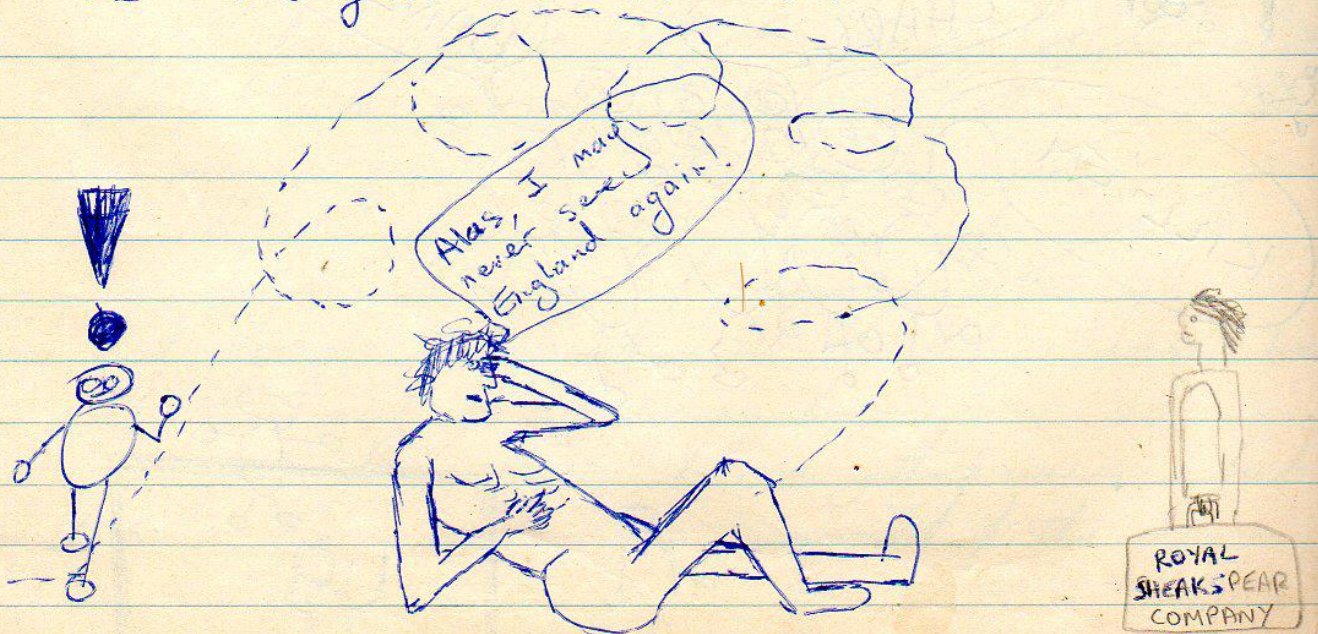 Alas, I may
never see
England again!
ROYAL
SHEAKSPEAR
COMPANY